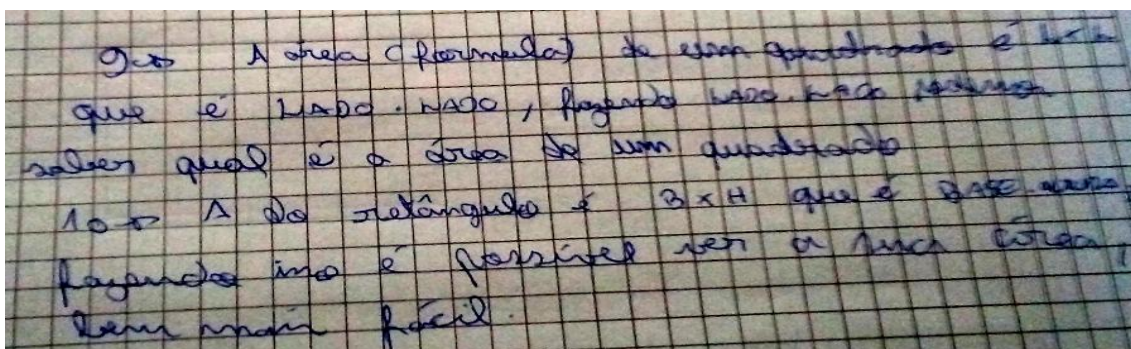 9-> A área (fórmula) de um quadrado é L x L
que é LADO . LADO, fazendo LADO . LADO
saber qual é a área de um quadrado
10-> A do retângulo é B x H que é BASE . ALTURA,
fazendo isso é possível ver a sua área,
bem mais fácil.